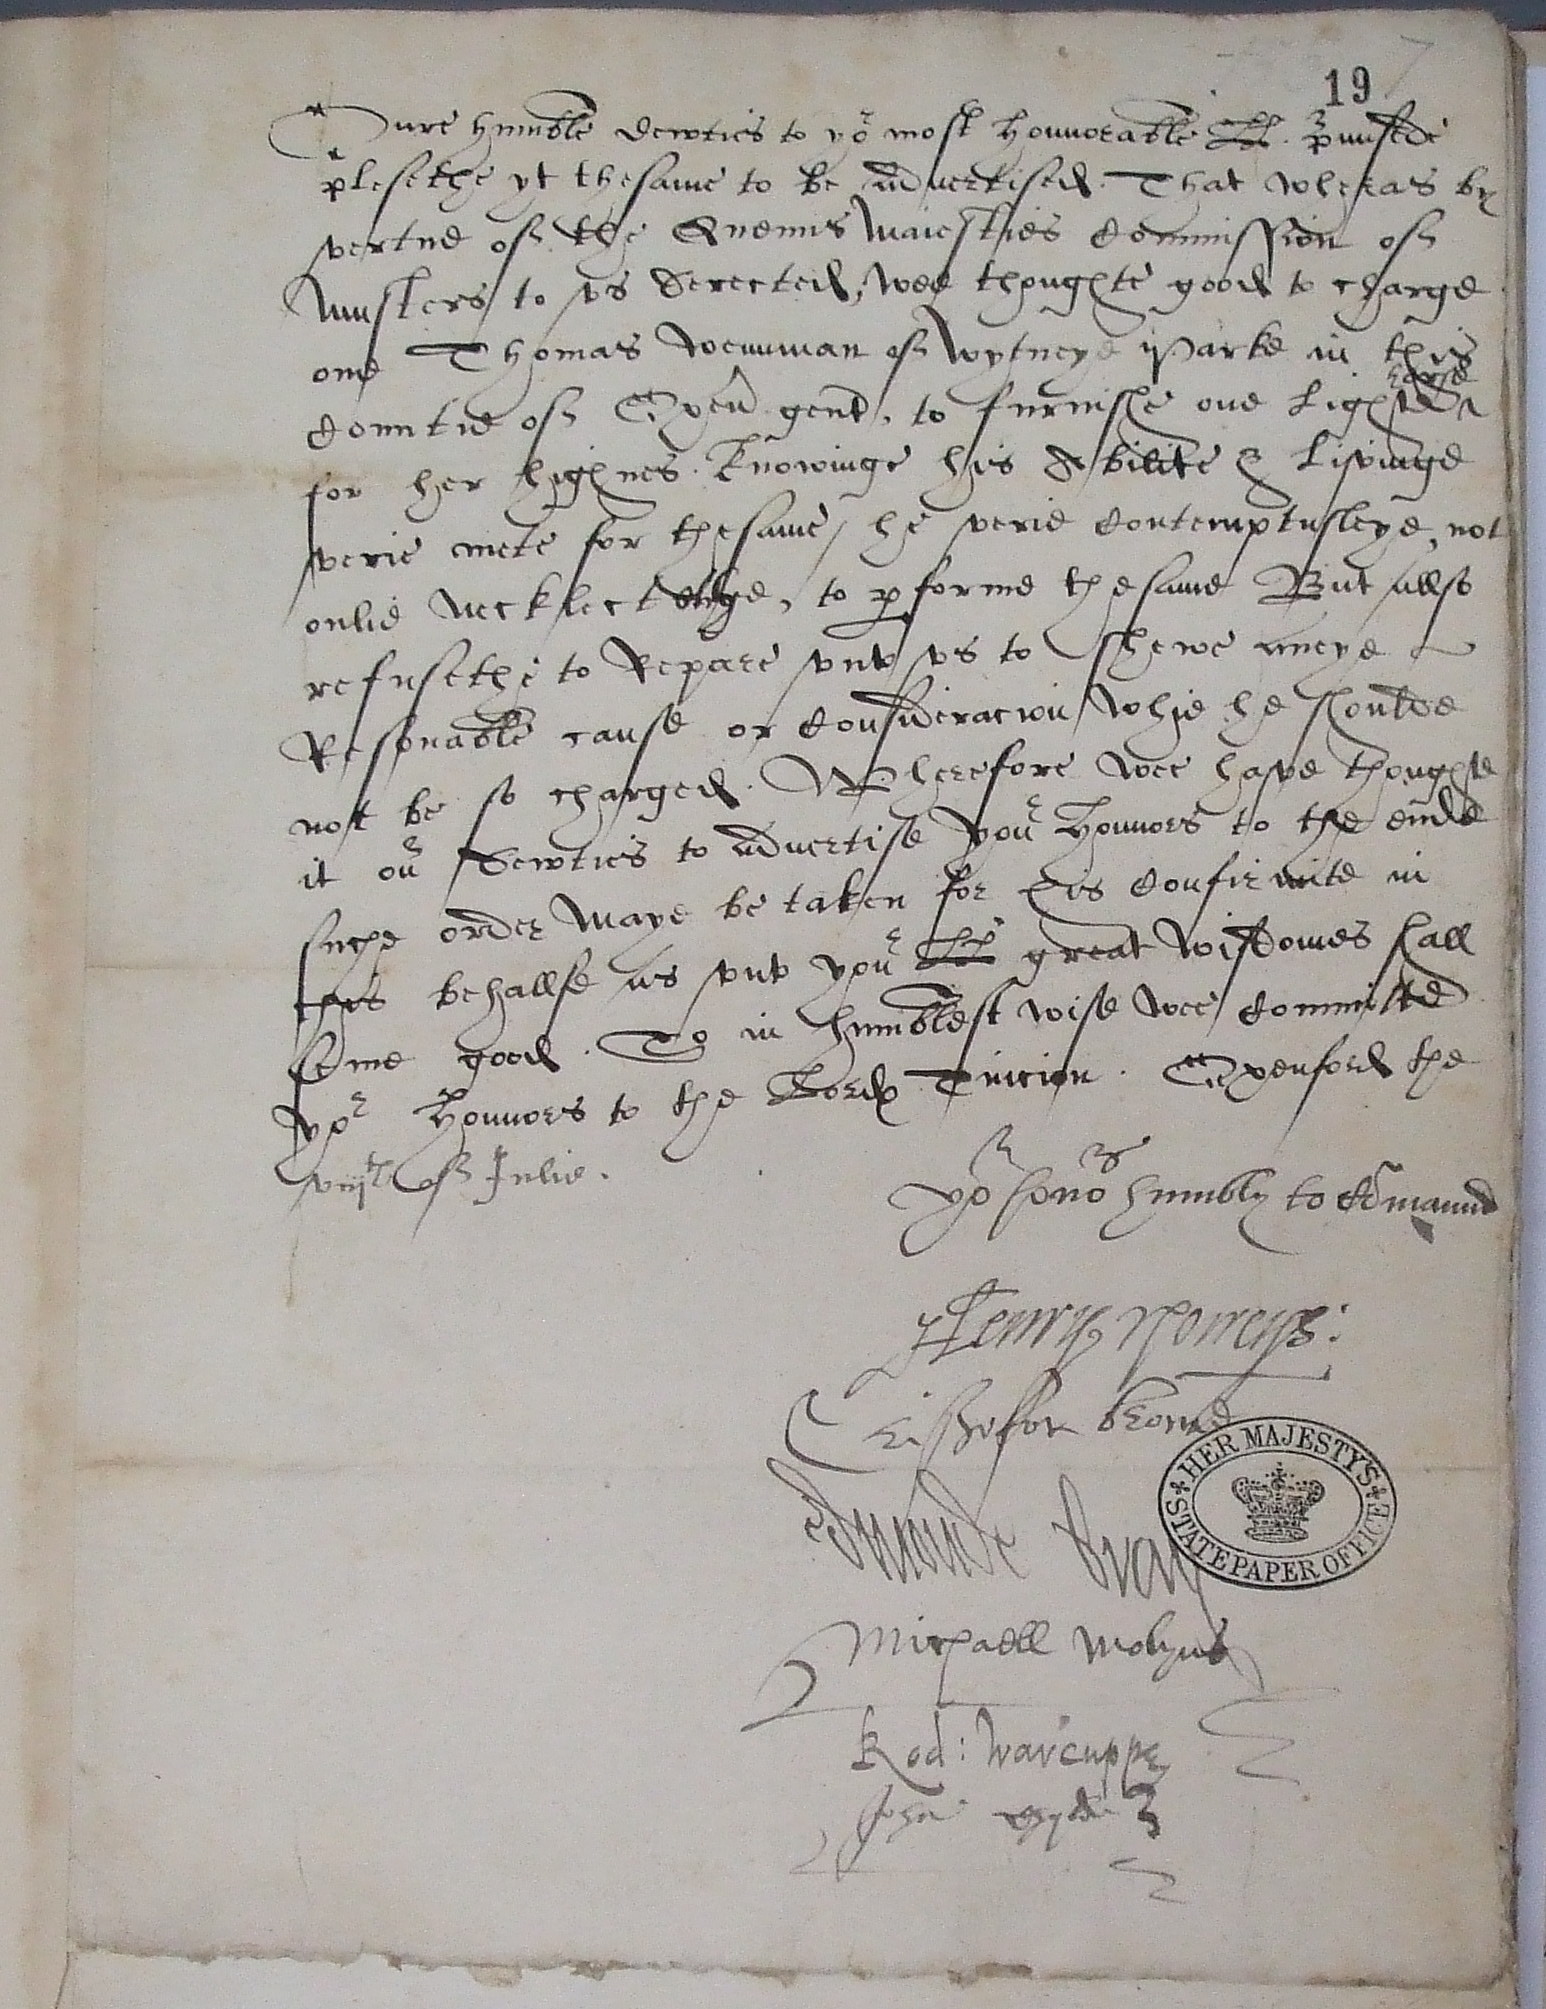 19
Oure humble dewties to yor most honnorable LL. premisede
plesethe yt thesame to be advertised. That wheras by
vertue of the Quenns Maiesties Commission of
Musters to vs Derected, wee thoughte good to charge
one Thomas Wenman of Wytneye Parke in this
Countie of Oxen gent, to furnishe one Light horse
for her highnes. Knowinge his Abilite & Livinge
verie mete for thesame, he verie Contemptusleye, not
onlie necklect, to pforme thesame But allso
refusethe to Repare vnto vs to shewe aneye
Resonable cause or Consideracion Whie he shoulde
not be so charged. Wherefore wee have thoughte
it our Dewties to advertise your Honnors to the ende
suche order Maye be taken for his Confirmite in
this behallfe as vnto your LL great Wisdomes shall
seme good. To in humblest wise wee Committe
yor Honnors to the Lords Tuicion. Oxenford the
viijth of Julie.
yor honors humbly to Comaund
Henry Norreys:
Cristefor Browne
Edmonde Bray
Michaell Molyns
Rod: Warcuppe
John
HER MAJESTY'S STATE PAPER OFFICE